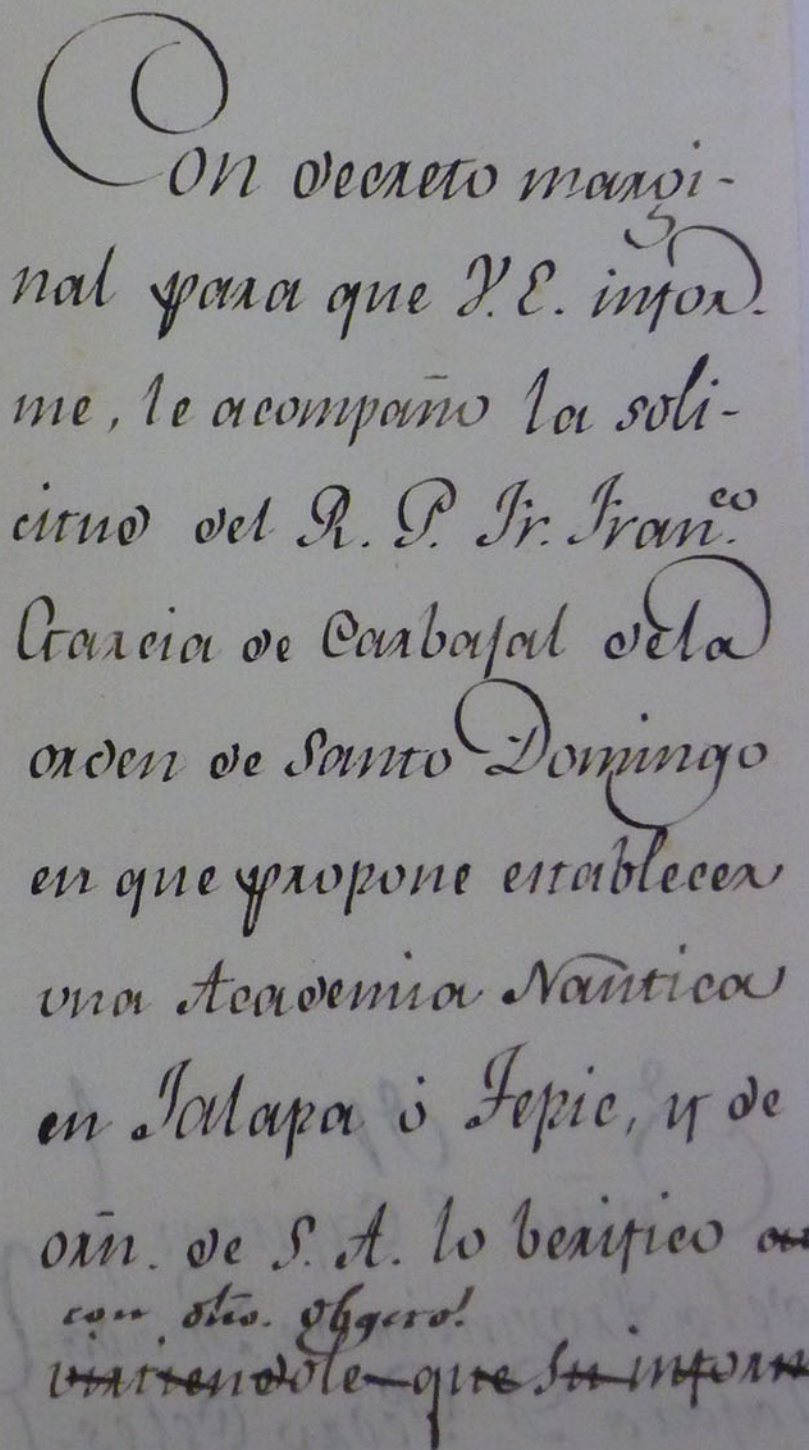 Con decreto margi-
nal para que V. E. infor-
me, le acompaño la soli-
citud del R. P. Fr. Fran.co
Garcia de Carbajal dela
orden de Santo Domingo
en que propone establecer
una Academia Naũtica
en Jalapa ó Tepic, y de
orñ. de S. A. lo berifico
con dho.
virtiendole que su inform